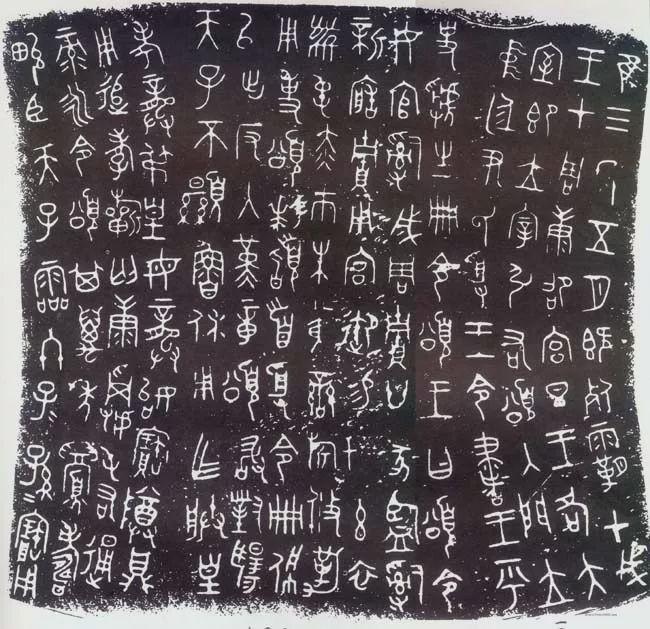 隹三年五月既死霸甲戌
王才周康卲宮旦王各大
室即立宰引右頌入門立
中廷尹氏受王令書王乎
史虢生冊令頌王曰頌令
女官𤔲成周貯廿家監𤔲
新造貯用宮御易女玄衣
黹屯赤巿朱黃䜌旂攸勒
用事頌拜𩒨首受令冊佩
以出反入堇章頌敢對揚
天子不顯魯休用乍朕皇
考龔弔皇母龔始寶尊鼎
用追孝𣄨匄康𩁹屯右通
彔永令頌其萬年眉壽
畯臣天子霝冬子=孫=寶用